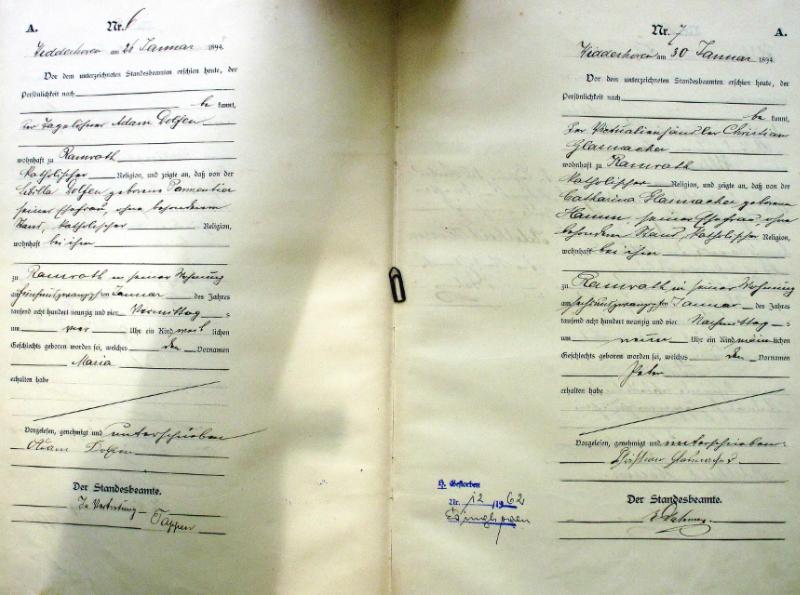 A.
Nr. 6
Widdeshoven am 26 Januar 1894.
Vor dem unterzeichneten Standesbeamten erschien heute, der
Persönlichkeit nach
be kannt,
der Tagelöhner Adam Dolfen
wohnhaft zu Ramrath
katholischer Religion, und zeigte an, daß von der
Sibilla Dolfen geborene
seiner Ehefrau, ohne besonderen
Stand, katholischer Religion,
wohnhaft bei ihm
zu Ramrath in seiner Wohnung
am fünfundzwanzigsten Januar des Jahres
tausend acht hundert neunzig und vier Vormittag s
um vier Uhr ein Kind weib lichen
Geschlechts geboren worden sei, welches den Vornamen
Maria
erhalten habe
Vorgelesen, genehmigt und unterschrieben
Adam Dolfen
Der Standesbeamte.
In Vertretung
Tappen
H. Gestorben
Nr. 12 /1962
A.
Nr. 7
Widdeshoven am 30 Januar 1894.
Vor dem unterzeichneten Standesbeamten erschien heute, der
Persönlichkeit nach
be kannt,
der Victualienhändler Christian
Glasmacher
wohnhaft zu Ramrath
katholischer Religion, und zeigte an, daß von der
Catharina Glasmacher geborenen
Hamm, seiner Ehefrau, ohne
besonderen Stand, katholischer Religion,
wohnhaft bei ihm
zu Ramrath in seiner Wohnung
am sechsundzwanzigsten Januar des Jahres
tausend acht hundert neunzig und vier Nachmittag s
um neun Uhr ein Kind männ lichen
Geschlechts geboren worden sei, welches den Vornamen
Peter
erhalten habe
Vorgelesen, genehmigt und unterschrieben
Christian Glasmacher
Der Standesbeamte.